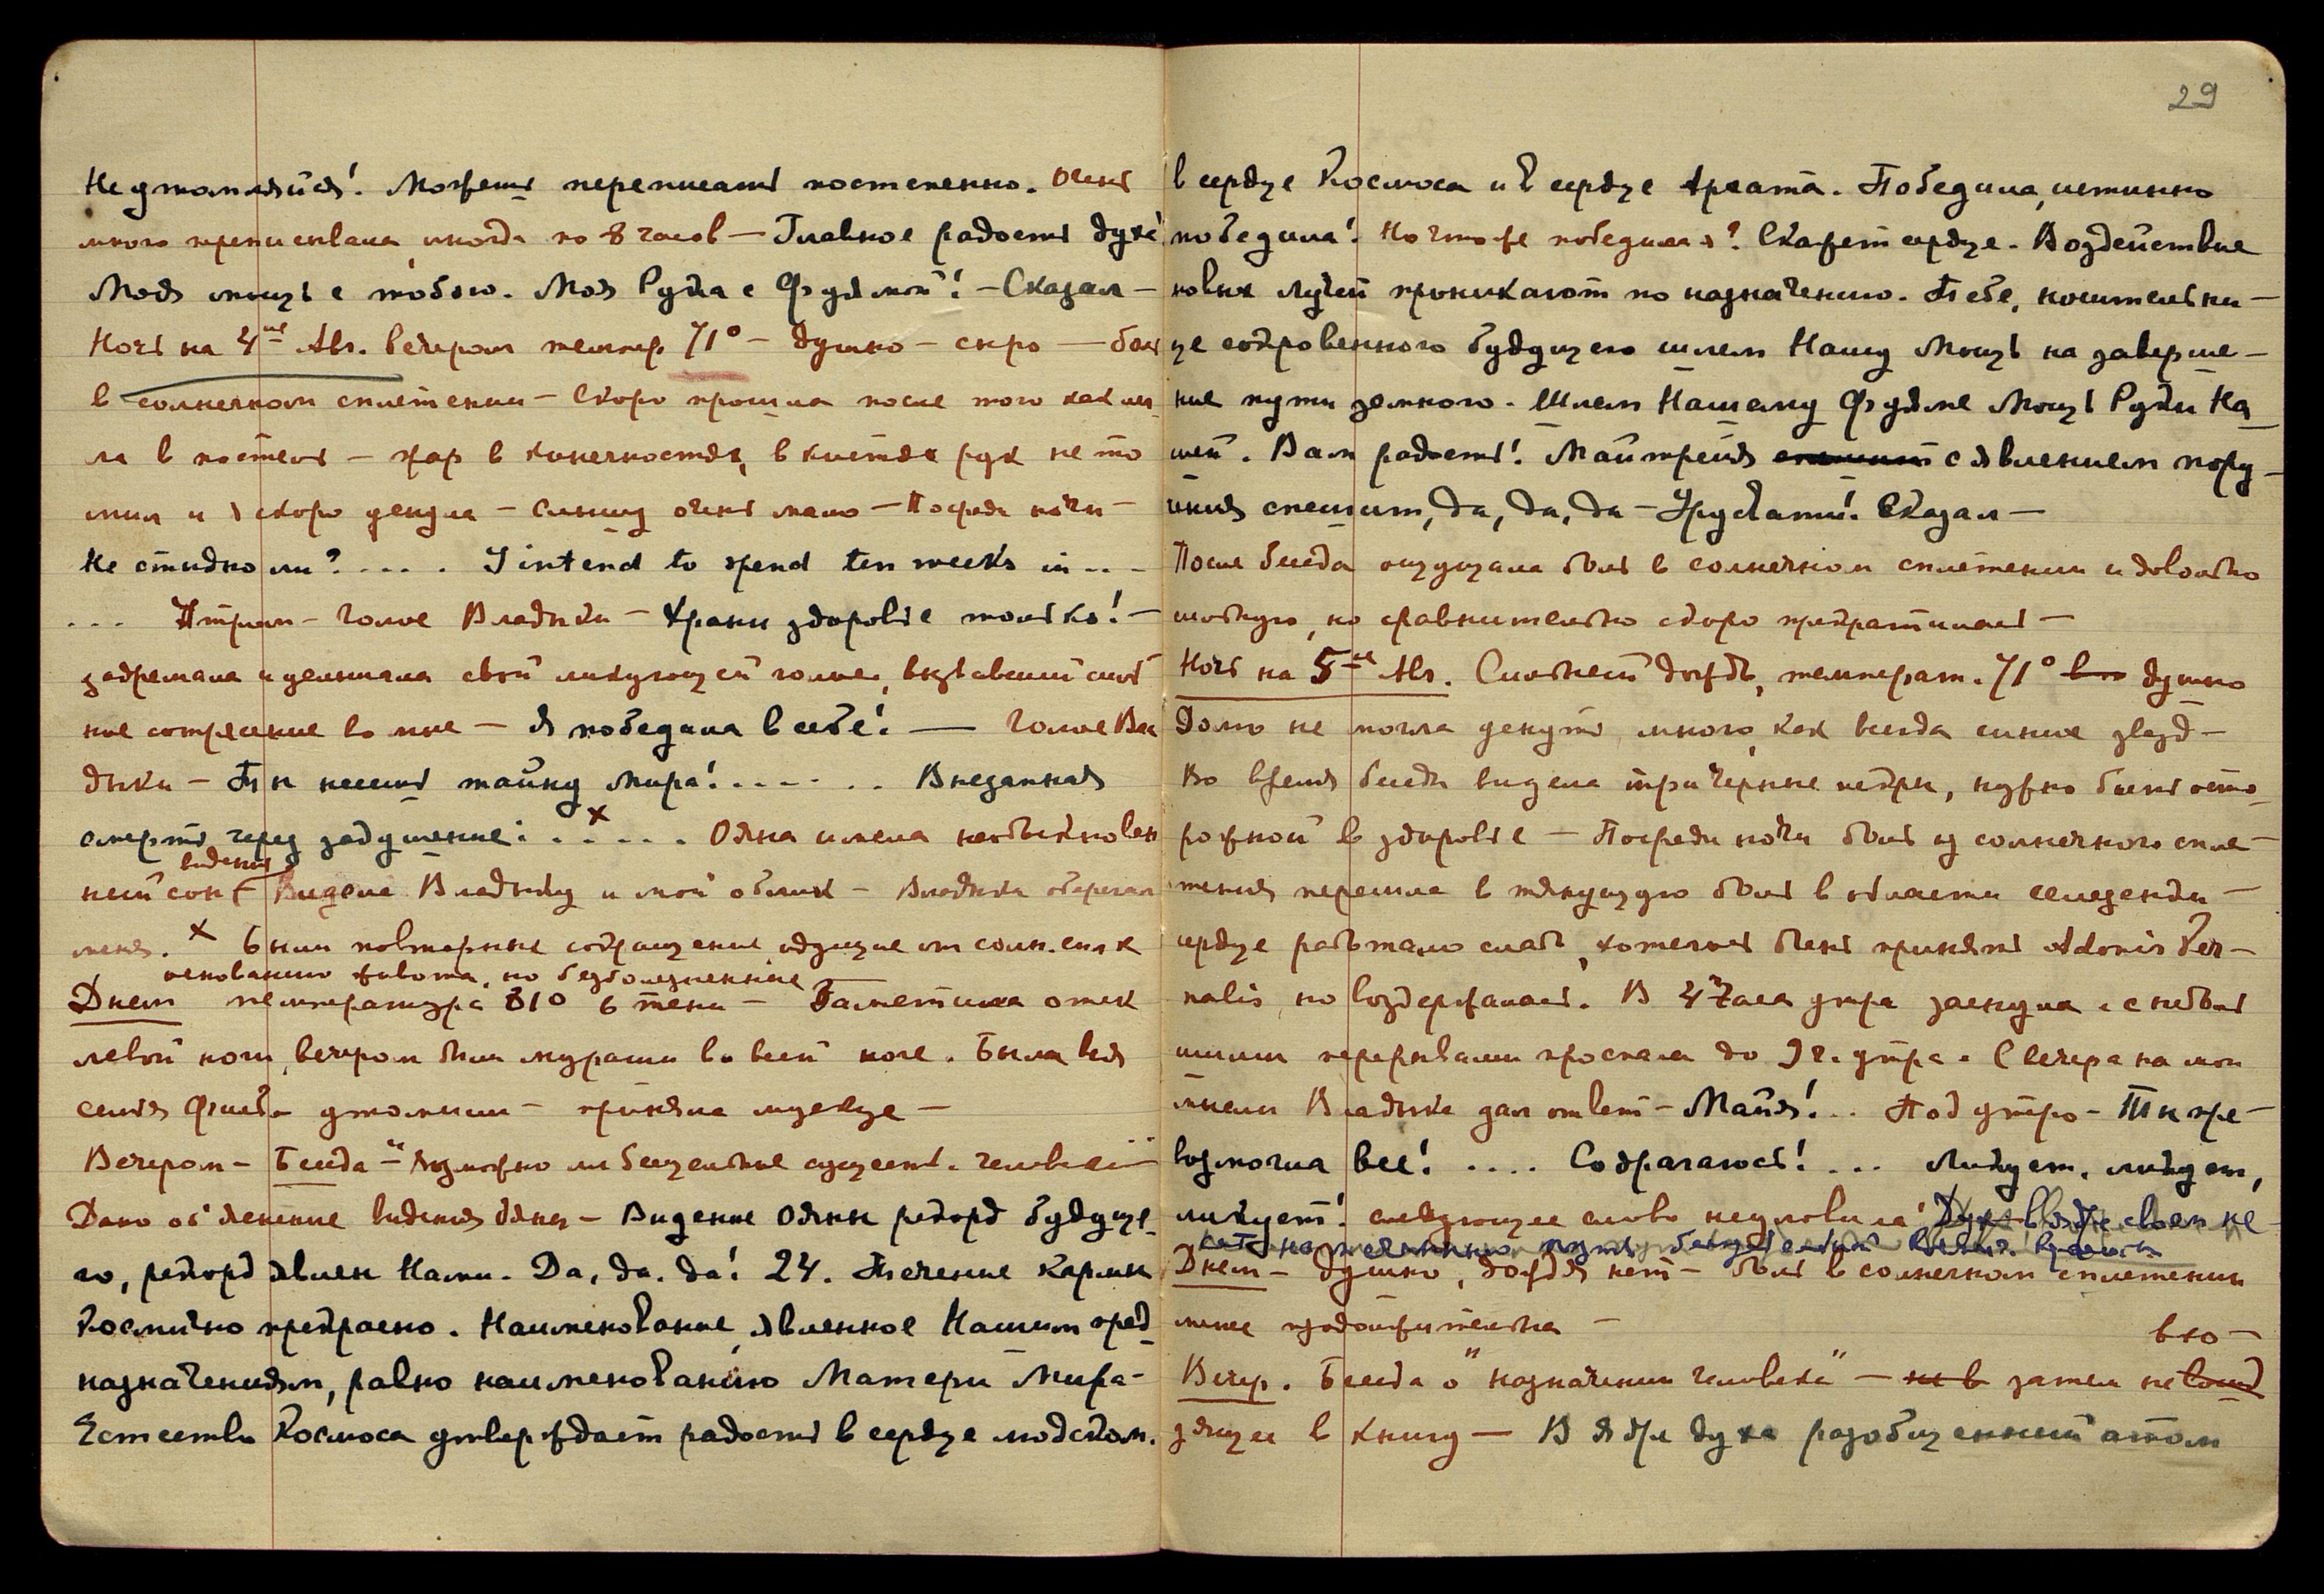 Не утомляйся! Можешь переписать постепенно. Очень
много переписывала, иногда по 8 часов — Главное радость духа!
Моя мощь с тобою. Моя Ручка с Фуямой! — Сказал —
Ночь на 4ое Авг. Вечером темпер. 71° — душно — сыро — боль
в солнечном сплетении — скоро прошла после того как лег
ла в постель — жар в конечностях, в кистях рук не то
мил и я скоро уснула — Слышу очень мало — Посреди ночи —
Не стыдно ли? .... I intend to spend ten weeks in ...
... Утром — Голос Владыки — Храни здоровье только! —
задремала и услышала свой ликующий голос, вызвавший силь
ное сотрясение во мне — Я победила в себе! — Голос Вла
дыки — Ты несешь тайну Мира! ...... Внезапная
смерть через задушение: ...x.. Ояна имела необыкновен
видение
ный сон — Видела Владыку и мой облик — Владыка оберегал
меня. x Были повторные сокращения идущие от солн. спл. к
основанию живота, но безболезненные
Днем температура 81° в тени — Заметила отек
левой ноги, вечером были мурашки во всей ноге. Была вся
семья утомили — приняла мускус —
Вечером — Беседа — "Возможно ли бесцельное существ. человека"
Дано об'яснение видения Ояны — Видение Ояны рекорд будуще
го, рекорд явлен Нами. Да, да, да! 24. Течение кармы
Космично прекрасно. Наименование, явленное Нашим пред
назначением, равно наименованию Матери Мира —
Естество Космоса утверждает радость в сердце людском.
29
в сердце Космоса и в сердце Архата. Победила, истинно
победила! Но что же победила я? Скажет сердце. Воздействие
новых лучей проникают по назначению. Тебе, носительни —
це сокровенного будущего шлем Нашу Мощь на заверше —
ние пути земного. Шлем Нашему Фуяме Мощь Руки На
шей. Вам радость! Майтрейя спешит с явлением пору —
чения спешит, да, да, да — Урусвати! Сказал —
После беседы ощущала боль в солнечном сплетении и довольно
сильную, но сравнительно скоро прекратилась —
Ночь на 5ое Авг. Сильный дождь, температ. 71° душно
Долго не могла уснуть, много, как всегда синих звезд —
Во время беседы видела три черные искры, нужно быть осто
рожной в здоровье — Посреди ночи боль из солнечного спле —
тения перешла в тянущую боль в области селезенки —
сердце работало слабо, хотелось быть принять Adonis Ver —
nalis, но воздержалась. В 4 часа утра заснула и с неболь
шими перерывами проспала до 9 ч. утра. С вечера на мои
мысли Владыка дал ответ — Майя! .. Под утро — Ты пре —
возмогла все! .... Содрагаюсь! ... Ликует, ликует,
ликует! следующее слово неуловила! Дух в ядре своем не
Днем — душно, дождя нет — боль в солнечном сплетении
менее продолжительна —
вхо —
Вечер. Беседа о "назначении человека" — не в затем не вошед
дящее в книгу — В ядре духа разобщенный атом